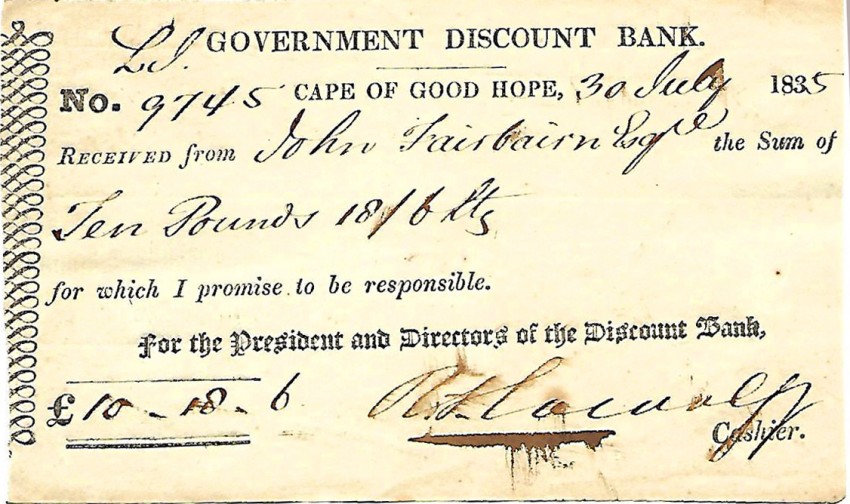 GOVERNMENT DISCOUNT BANK.
No. 9745 CAPE OF GOOD HOPE, 30 July 1835
RECEIVED from John Fairbairn Esqre the Sum of
Ten Pounds 18/6
for which I promise to be responsible.
For the President and Directors of the Discount Bank,
£ 10 - 18 - 6
Cashier.